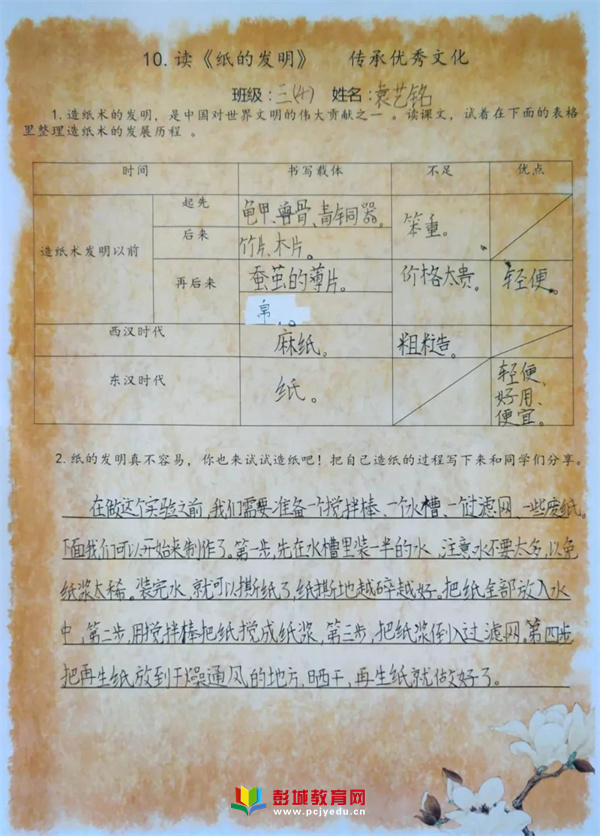 10.读《纸的发明》 传承优秀文化
班级:三(4) 姓名:袁艺铭
1.造纸术的发明,是中国对世界文明的伟大贡献之一。读课文,试着在下面的表格
里整理造纸术的发展历程。
时间 书写载体 不足 优点
造纸术发明以前 起先 龟甲、兽骨、青铜器。 笨重。
后来 竹片、木片。
再后来 蚕茧的薄片。 价格太贵。 轻便。
帛
西汉时代 麻纸。 粗糙。
东汉时代 纸。 轻便、
好用、
便宜。
2.纸的发明真不容易,你也来试试造纸吧!把自己造纸的过程写下来和同学们分享。
在做这个实验之前,我们需要准备一个搅拌棒、一个水槽、一个过滤网、一些废纸。
下面我们可以开始来制作了。第一步,先在水槽里装一半的水,注意水不要太多,以免
纸浆太稀。装完水,就可以撕纸了,纸撕地越碎越好。把纸全部放入水
中,第二步,用搅拌棒把纸搅成纸浆,第三步,把纸浆倒入过滤网。第四步
把再生纸放到干燥通风的地方,晒干,再生纸就做好了。
彭城教育网
www.pcjyedu.cn